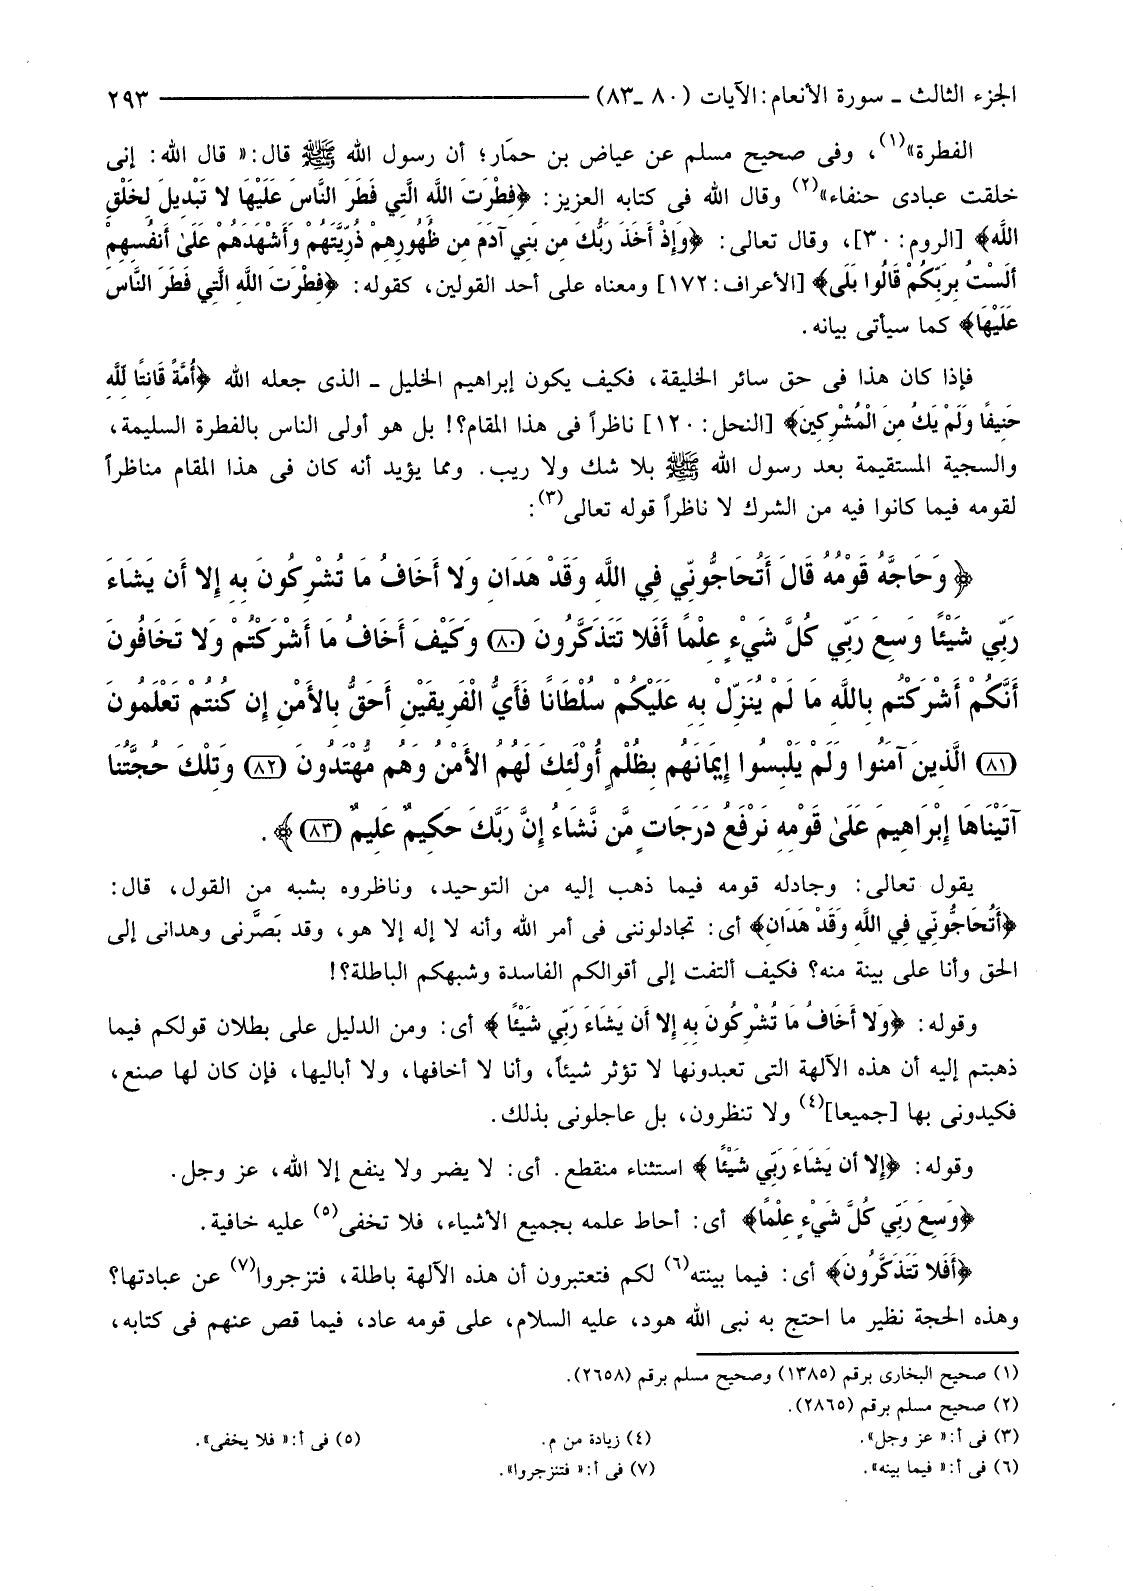 الجزء الثالث ـ سورة الأنعام: الآيات (٨٠ ـ٨٣) ٢٩٣
الفطرة»(١)، وفى صحيح مسلم عن عياض بن حمَار؛ أن رسول الله ﷺ قال:« قال الله: إنى
خلقت عبادى حنفاء»(٢) وقال الله فى كتابه العزيز: ﴿فِطْرَتَ اللَّهِ الَّتِي فَطَرَ النَّاسَ عَلَيْهَا لا تَبْدِيلَ لِخَلْقِ
اللَّهِ﴾ [الروم: ٣٠]، وقال تعالى: ﴿وَإِذْ أَخَذَ رَبُّكَ مِن بَنِي آدَمَ مِن ظُهُورِهِمْ ذُرِّيَّتَهُمْ وَأَشْهَدَهُمْ عَلَىٰ أَنفُسِهِمْ
أَلَسْتُ بِرَبِّكُمْ قَالُوا بَلَى﴾ [الأعراف: ١٧٢] ومعناه على أحد القولين، كقوله: ﴿فِطْرَتَ اللَّهِ الَّتِي فَطَرَ النَّاسَ
عَلَيْهَا﴾ كما سيأتى بيانه.
فإذا كان هذا فى حق سائر الخليقة، فكيف يكون إبراهيم الخليل ـ الذى جعله الله ﴿أُمَّةً قَانِتًا لِلَّهِ
حَنِيفًا وَلَمْ يَكُ مِنَ الْمُشْرِكِينَ﴾ [النحل: ١٢٠] ناظراً فى هذا المقام؟! بل هو أولى الناس بالفطرة السليمة،
والسجية المستقيمة بعد رسول الله ﷺ بلا شك ولا ريب. ومما يؤيد أنه كان فى هذا المقام مناظراً
لقومه فيما كانوا فيه من الشرك لا ناظراً قوله تعالى(٣):
﴿ وَحَاجَّهُ قَوْمُهُ قَالَ أَتُحَاجُّونِّي فِي اللَّهِ وَقَدْ هَدَانِ وَلا أَخَافُ مَا تُشْرِكُونَ بِهِ إِلا أَن يَشَاءَ
رَبِّي شَيْئًا وَسِعَ رَبِّي كُلَّ شَيْءٍ عِلْمًا أَفَلا تَتَذَكَّرُونَ (٨٠) وَكَيْفَ أَخَافُ مَا أَشْرَكْتُمْ وَلا تَخَافُونَ
أَنَّكُمْ أَشْرَكْتُم بِاللَّهِ مَا لَمْ يُنَزِّلْ بِهِ عَلَيْكُمْ سُلْطَانًا فَأَيُّ الْفَرِيقَيْنِ أَحَقُّ بِالأَمْنِ إِن كُنتُمْ تَعْلَمُونَ
(٨١) الَّذِينَ آمَنُوا وَلَمْ يَلْبِسُوا إِيمَانَهُم بِظُلْمٍ أُوْلَئِكَ لَهُمُ الأَمْنُ وَهُم مُّهْتَدُونَ (٨٢) وَتِلْكَ حُجَّتُنَا
آتَيْنَاهَا إِبْرَاهِيمَ عَلَىٰ قَوْمِهِ نَرْفَعُ دَرَجَاتٍ مَّن نَّشَاءُ إِنَّ رَبَّكَ حَكِيمٌ عَلِيمٌ (٨٣) ﴾.
يقول تعالى: وجادله قومه فيما ذهب إليه من التوحيد، وناظروه بشبه من القول، قال:
﴿أَتُحَاجُّونِّي فِي اللَّهِ وَقَدْ هَدَانِ﴾ أى: تجادلوننى فى أمر الله وأنه لا إله إلا هو، وقد بَصَّرنى وهدانى إلى
الحق وأنا على بينة منه؟ فكيف ألتفت إلى أقوالكم الفاسدة وشبهكم الباطلة؟!
وقوله: ﴿وَلا أَخَافُ مَا تُشْرِكُونَ بِهِ إِلا أَن يَشَاءَ رَبِّي شَيْئًا ﴾ أى: ومن الدليل على بطلان قولكم فيما
ذهبتم إليه أن هذه الآلهة التى تعبدونها لا تؤثر شيئاً، وأنا لا أخافها، ولا أباليها، فإن كان لها صنع،
فكيدونى بها [جميعا](٤) ولا تنظرون، بل عاجلونى بذلك.
وقوله: ﴿إِلا أَن يَشَاءَ رَبِّي شَيْئًا ﴾ استثناء منقطع. أى: لا يضر ولا ينفع إلا الله، عز وجل.
﴿وَسِعَ رَبِّي كُلَّ شَيْءٍ عِلْمًا﴾ أى: أحاط علمه بجميع الأشياء، فلا تخفى(٥) عليه خافية.
﴿أَفَلا تَتَذَكَّرُونَ﴾ أى: فيما بينته(٦) لكم فتعتبرون أن هذه الآلهة باطلة، فتزجروا(٧) عن عبادتها؟
وهذه الحجة نظير ما احتج به نبى الله هود، عليه السلام، على قومه عاد، فيما قص عنهم فى كتابه،
(١) صحيح البخارى برقم (١٣٨٥) وصحيح مسلم برقم (٢٦٥٨).
(٢) صحيح مسلم برقم (٢٨٦٥).
(٣) فى أ:« عز وجل». (٤) زيادة من م. (٥) فى أ:« فلا يخفى».
(٦) فى أ:« فيما بينه». (٧) فى أ:« فتنزجروا».